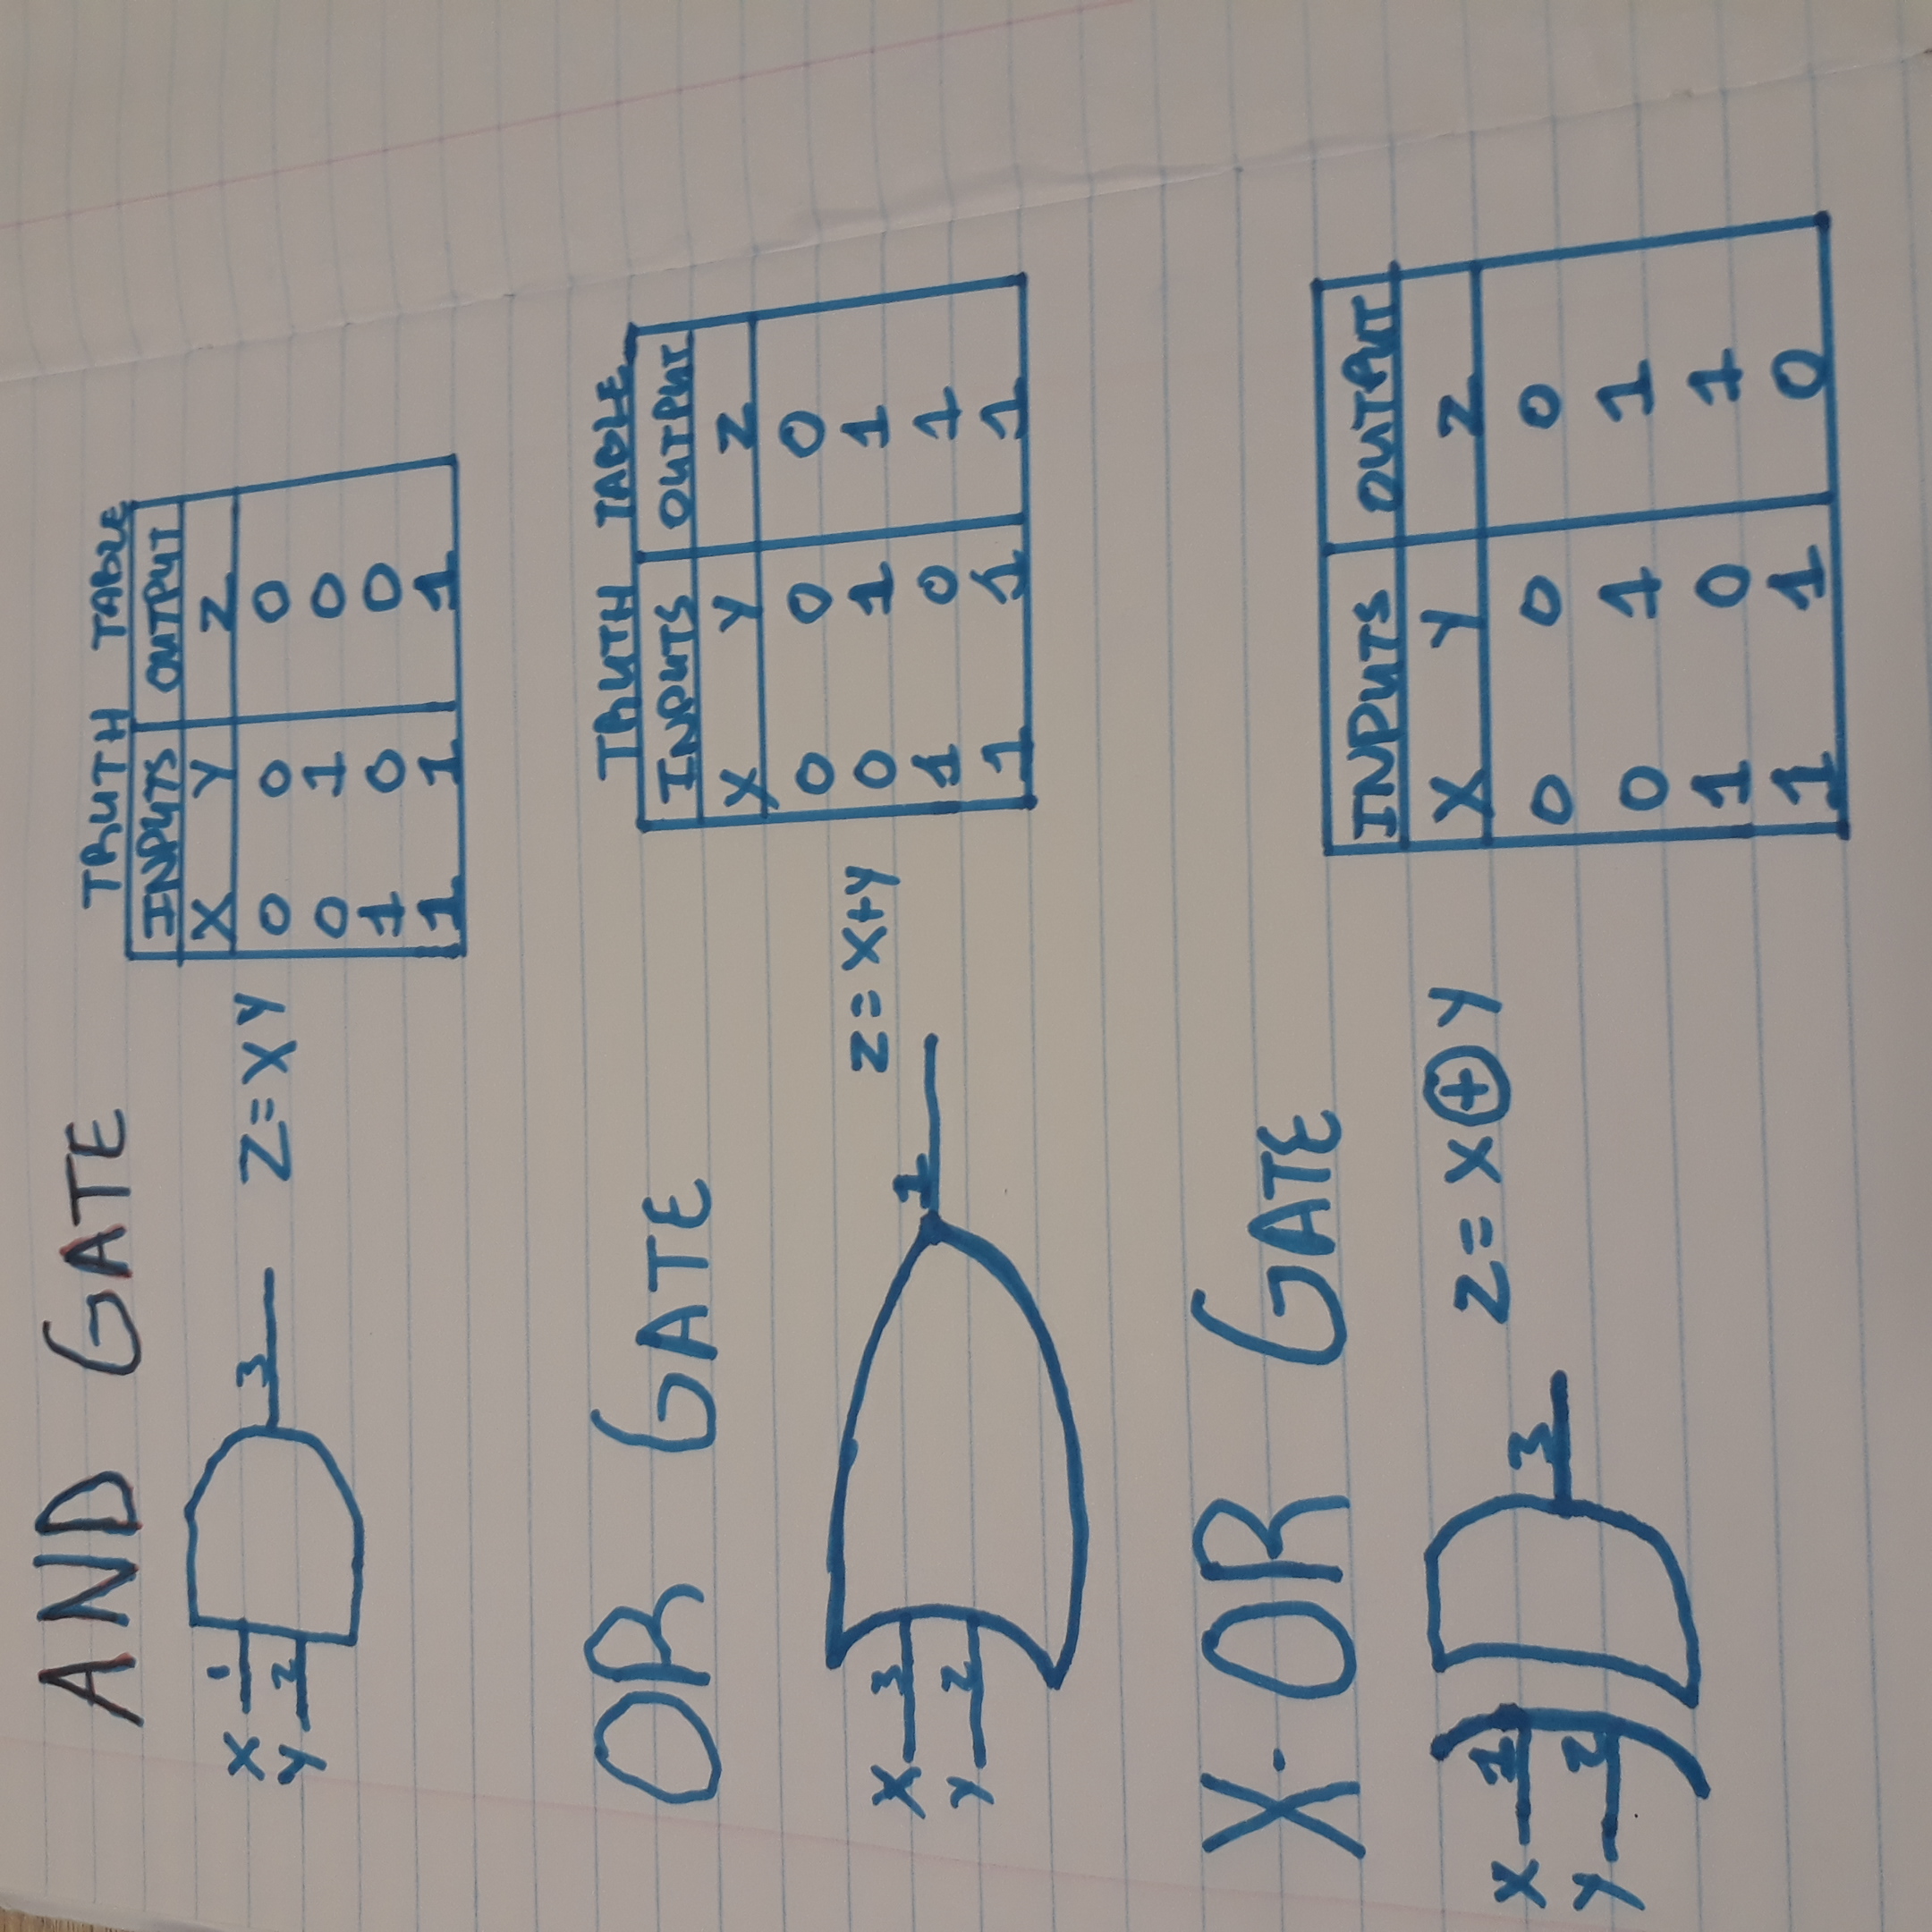 AND GATE
X 1
Y 2
3
Z=XY
TRUTH TABLE
INPUTS OUTPUT
X Y Z
0 0 0
0 1 0
1 0 0
1 1 1
OR GATE
X 3
Y 2
1
Z=X+Y
TRUTH TABLE
INPUTS OUTPUT
X Y Z
0 0 0
0 1 1
1 0 1
1 1 1
X-OR GATE
X 1
Y 2
3
Z=X⊕Y
INPUTS OUTPUT
X Y Z
0 0 0
0 1 1
1 0 1
1 1 0